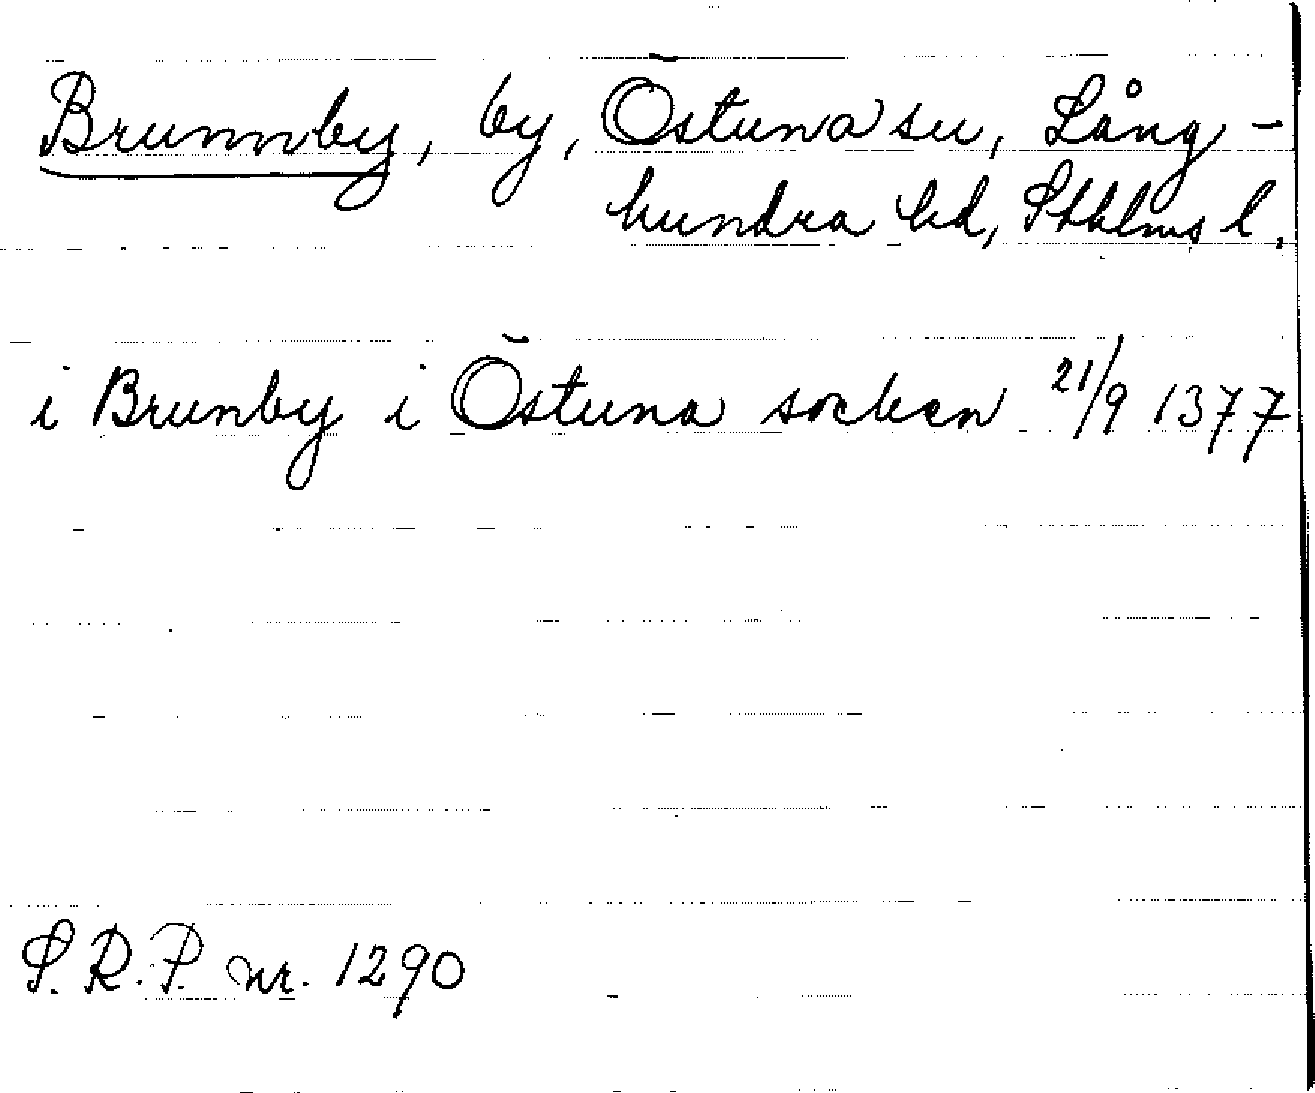 Brunnby, by, Östuna sn, Lång-
hundra hd, Sthlms l.
i Brunby i Östuna socken 21/9 1377
S. R. P. nr. 1290